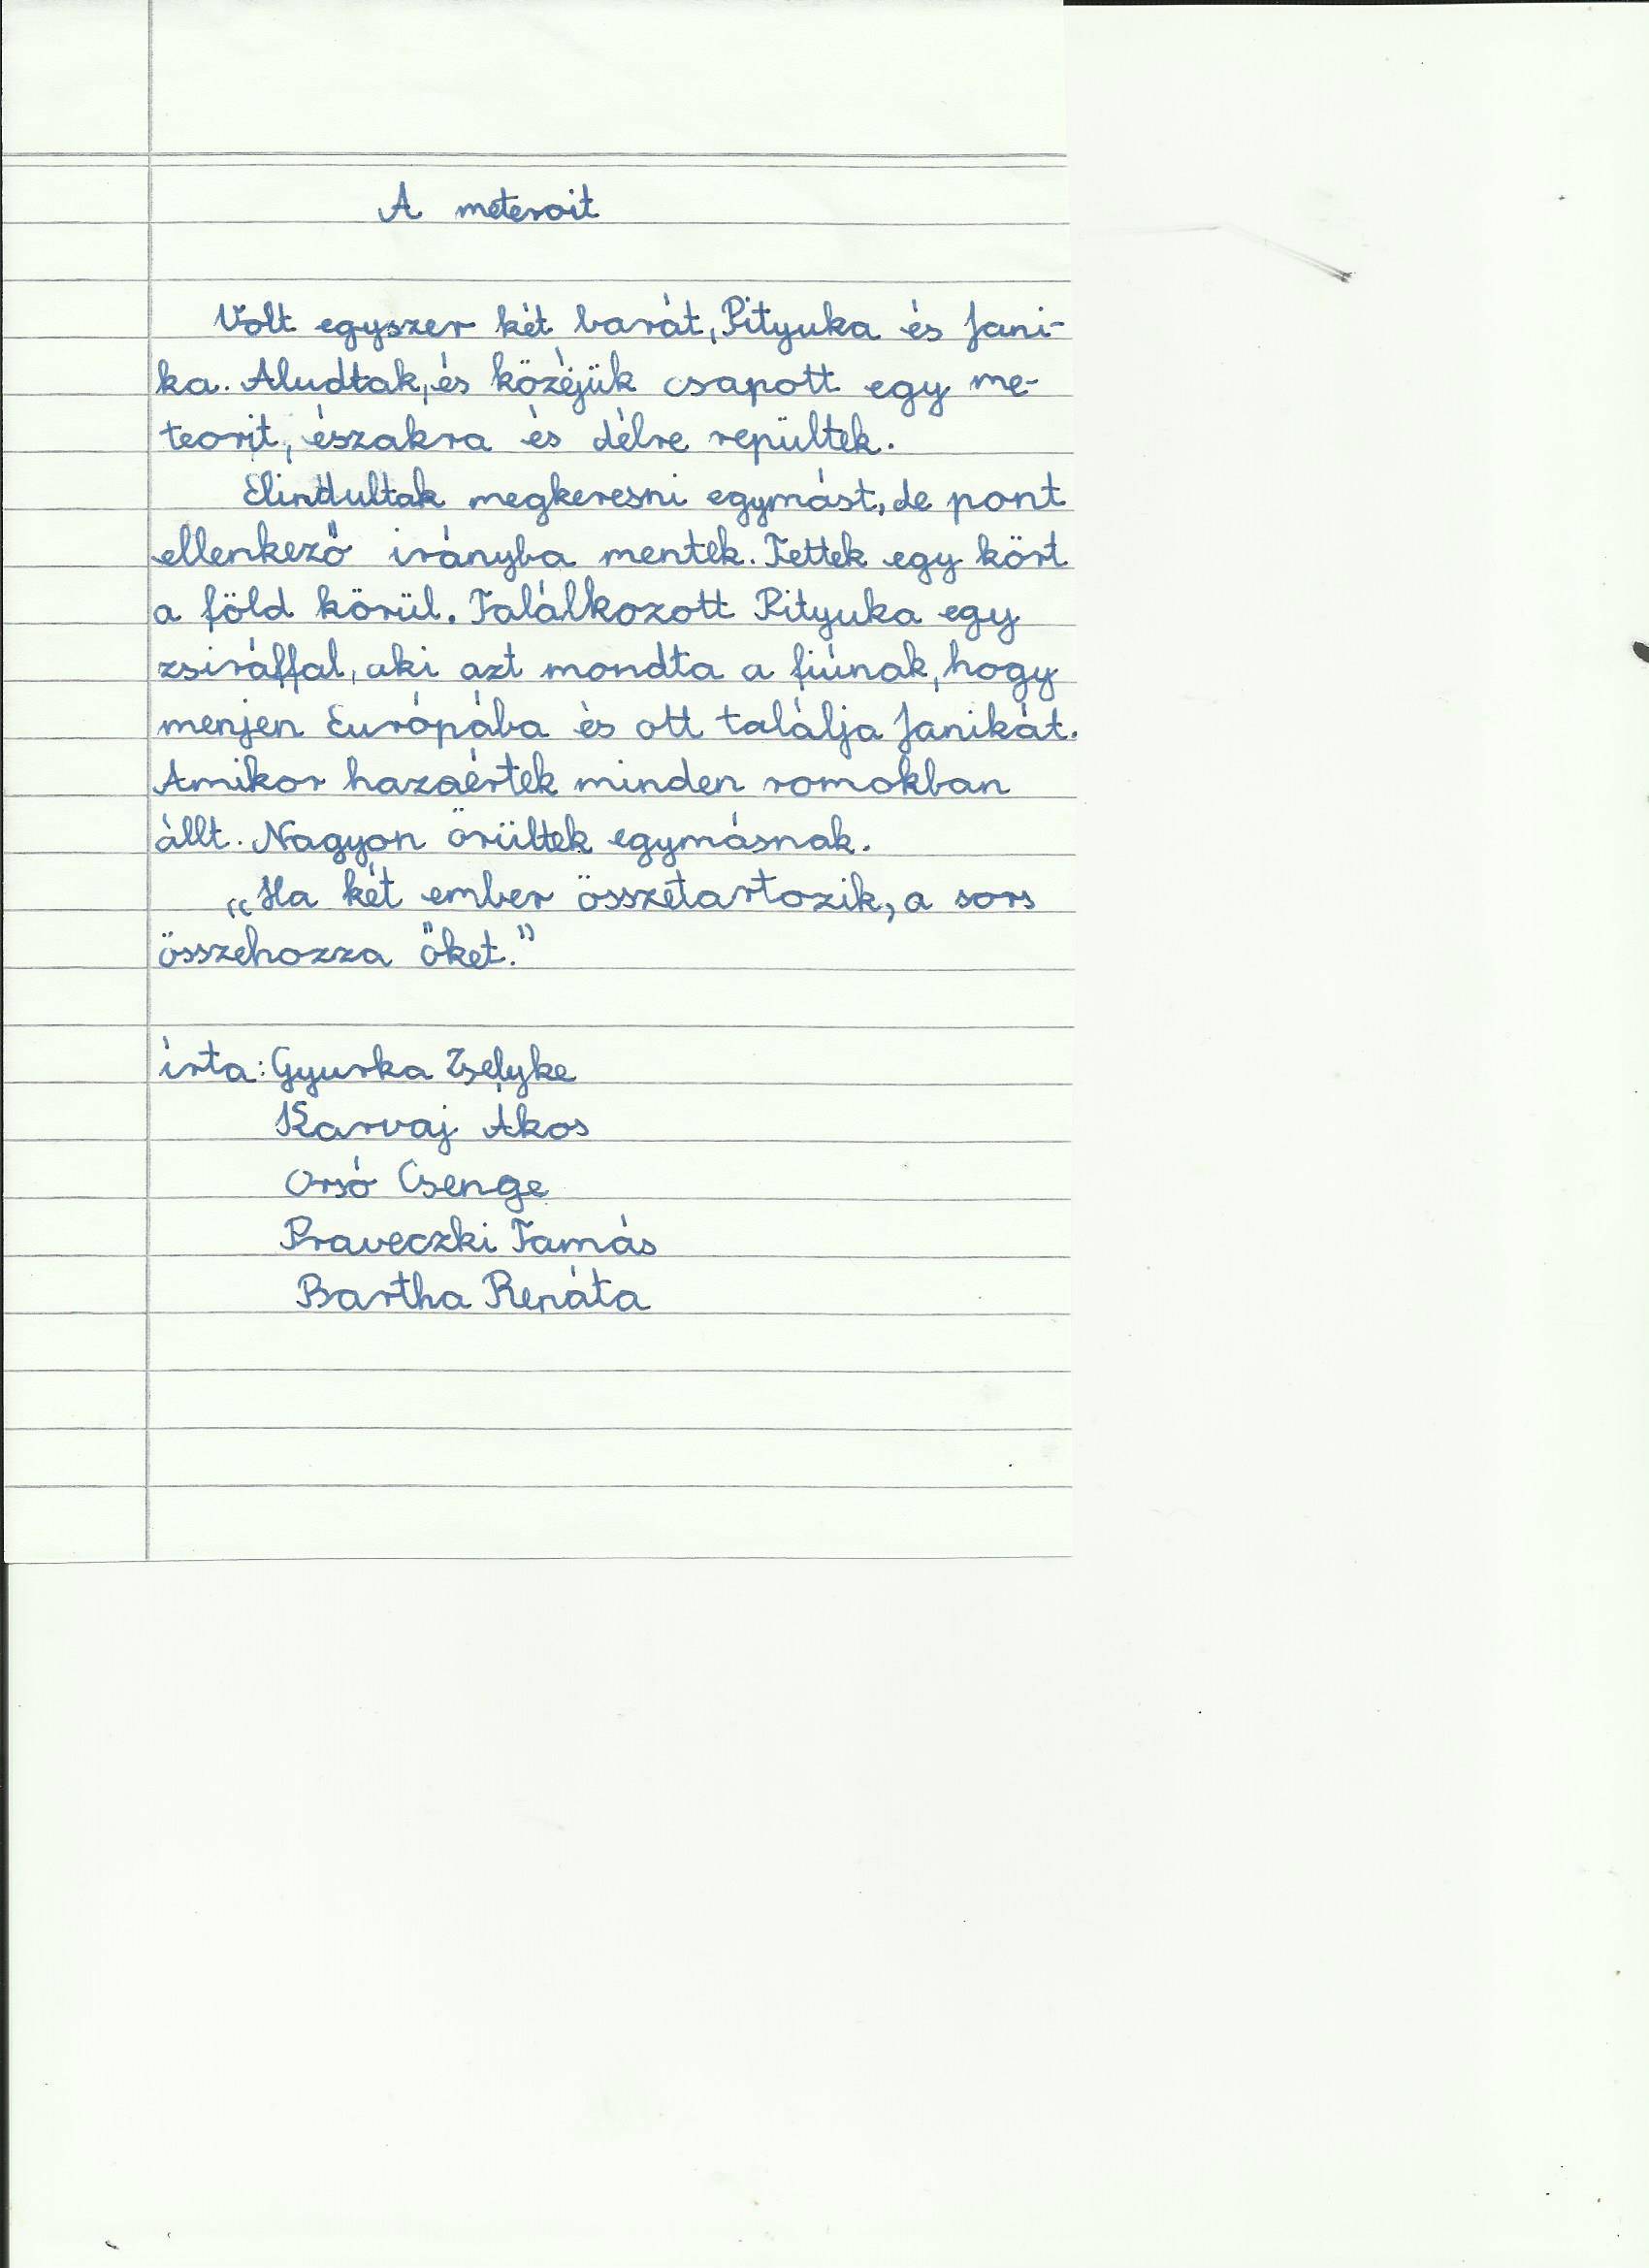 A meteroit
Volt egyszer két barát, Pityuka és Jani-
ka. Aludtak, és közéjük csapott egy me-
teorit, északra és délre repültek.
Elindultak megkeresni egymást, de pont
ellenkező irányba mentek. Tettek egy kört
a föld körül. Találkozott Pityuka egy
zsiráffal, aki azt mondta a fiúnak, hogy
menjen Európába és ott találja Janikát.
Amikor hazaértek minden romokban
állt. Nagyon örültek egymásnak.
„Ha két ember összetartozik, a sors
összehozza őket.”
írta: Gyurka Zselyke
Karvaj Ákos
Orsó Csenge
Praveczki Tamás
Bartha Renáta